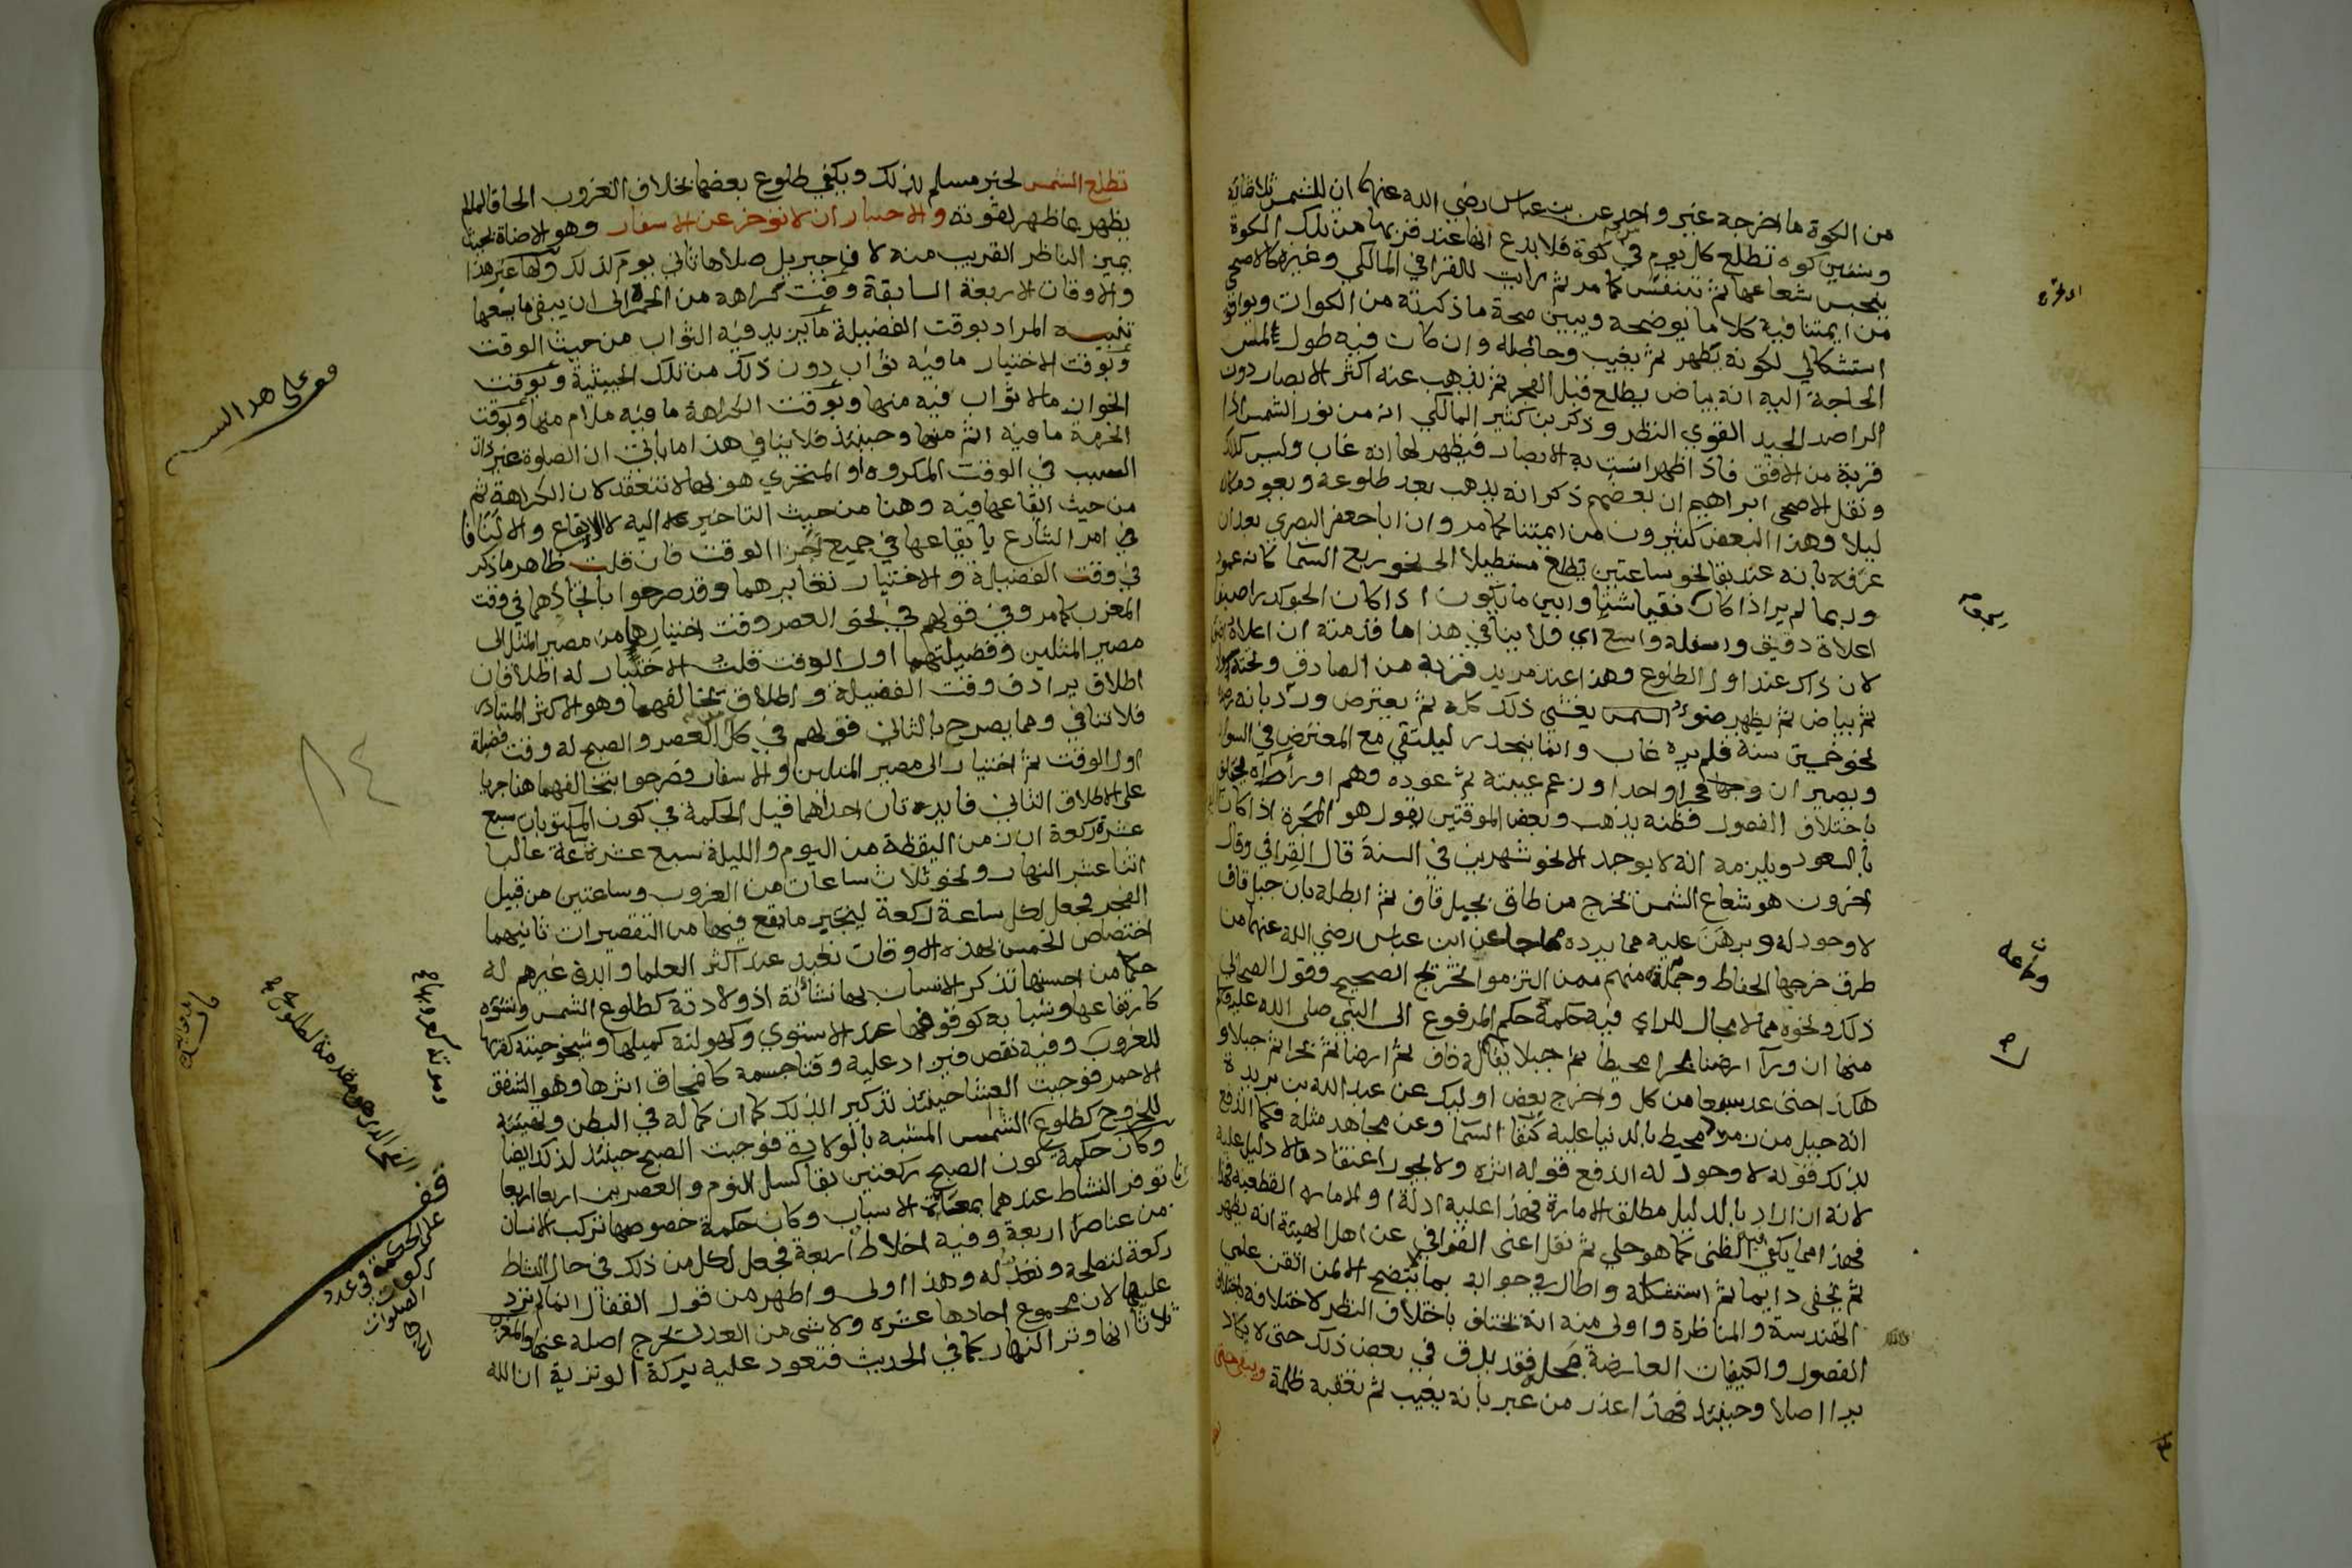 من الكوة ما اخرجه غير واحد عن بن عباس رضي الله عنهما ان للشمس ثلاثمائة
وستين كوه تطلع كل يوم في كوة فلا بدع انها عند قربها من تلك الكوة
ينحبس شعاعها ثم تتنفس كما مر ثم رايت للقرافي المالكي وغيره كالاصبحي
من ايمتنا فيه كلاما يوضحه ويبين صحة ما ذكرته من الكوات ويوافق
استشكالي لكونه يظهر ثم يغيب وحاصله وان كان فيه طول لمس
الحاجة اليه انه بياض يطلع قبل الفجر ثم يذهب عند اكثر الابصار دون
الراصد المجيد القوي النظر وذكر بن كثير المالكي انه من نور الشمس اذا
قربة من الافق فاذا ظهر انست به الابصار فيظهر لها انه غاب وليس كذلك
ونقل الاصبحي ابراهيم ان بعضهم ذكر انه يذهب بعد طلوعه ويعود مكانه
ليلا وهذا البعض كثيرون من ايمتنا كما مر وان ابا جعفر البصري بعد ان
عرفه بانه عند بقا نحو ساعتين يطلع مستطيلا الى نحو ربع السما كانه عمود
وربما لم ير اذا كان نقيا شتا وابين ما يكون اذا كان الجو كدرا صيفا
اعلاه دقيق واسفله واسع اي ولا ينافي هذا ما قدمته ان اعلاه
لان ذاك عند اول الطلوع وهذا عند مزيد قربه من الصادق وتحته سواد
ثم بياض ثم يظهر ضوء يغشي ذلك كله ثم يعترض ورد بانه رصد
نحو خمسين سنة فلم يره غاب وانما ينحدر ليلتقي مع المعترض في السواد
ويصيران فجرا واحدا وزعم غيبته ثم عوده وهم او رأه يختلف
باختلاف الفصول فظنه يذهب وبعض الموقتين يقول هو المجرة اذا كان
بالسعود ويلزمه انه لا يوجد الا نحو شهرين في السنة قال القرافي وقال
اخرون هو شعاع الشمس يخرج من طاق بجبل قاف ثم ابطله بان جبل قاف
لا وجود له وبرهن عليه مما يرده ما جا عن ابن عباس رضي الله عنهما من
طرق خرجها الحفاظ وجماعة منهم ممن التزموا تخريج الصحيح وقول الصحابي
ذلك ونحوه مما لا مجال للراي فيه حكمه حكم المرفوع الى النبي صلى الله عليه وسلم
منها ان ورآ ارضنا بحرا محيطا ثم جبلا يقال له قاف ثم ارضا ثم بحرا ثم جبلا و
هكذا حتى عد سبعا من كل واخرج بعض اوليك عن عبد الله بن بريدة
انه جبل من زمرد محيط بالدنيا عليه كنفا السما وعن مجاهد مثله فكما اندفع
بذلك قوله لا وجود له اندفع قوله اثره ولا يجوز اعتقاد ما لا دليل عليه
لانه ان اراد بالدليل مطلق الامارة فهذا عليه ادلة او الامارة القطعية فهذا
فهذا مما يكفي فيه الظني كما هو جلي ثم نقل اعني القرافي عن اهل الهيئة انه يظهر
ثم يخفى دايما ثم استشكله واطال في جوابه بما لا يتضح الا لمن اتقن علمي
الهندسة والمناظرة واولى منه انه يختلف باختلاف النظر لاختلافه باختلاف
الفصول والكيفيات العارضة لمحله فقد يدق في بعض ذلك حتى لا يكاد
يرا اصلا وحينئذ فهذا عذر من عبر بانه يغيب ثم تعقبه ظلمة ويبقى حتى
وجماعة
صح
تطلع الشمس لخبر مسلم بذلك ويكفي طلوع بعضها بخلاف الغروب الحاقا لما لم
يظهر بما ظهر لقوته والاختيار ان لا توخر عن الاسفار وهو الاضاة بحيث
يميز الناظر القريب منه لان جبريل صلاها ثاني يوم كذلك ولها غير هذا
والاوقات الاربعة السابقة وقت كراهه من الحمرة الى ان يبقى ما يسعها
تنبيه المراد بوقت الفضيلة ما يزيد فيه الثواب من حيث الوقت
وبوقت الاختيار ما فيه ثواب دون ذلك من تلك الحيثية وبوقت
الجواز ما لا ثواب فيه منها وبوقت الكراهة ما فيه ملام منها وبوقت
الحرمة ما فيه اثم منها وحينئذ فلا ينافي هذا ما ياتي ان الصلوة غير ذات
السبب في الوقت المكروه او المتحري هو لها لا تنعقد لان الكراهة ثم
من حيث ايقاعها فيه وهنا من حيث التاخير اليه لا الايقاع والا لنافا
امر الشارع بايقاعها في جميع اجزا الوقت فان قلت ظاهر ما ذكر
في وقت الفضيلة والاختيار تغايرهما وقد صرحوا باتحادهما في وقت
المغرب كما مر وفي قولهم في نحو العصر وقت اختيارها من مصير المثل الى
مصير المثلين وفضيلتها اول الوقت قلت الاختيار له اطلاقان
اطلاق يرادف وقت الفضيلة واطلاق يخالفها وهو الاكثر المتبادر
فلا تنافي ومما يصرح بالثاني قولهم في كل من العصر والصبح له وقت فضيلة
اول الوقت ثم اختيار الى مصير المثلين والاسفار فصرحوا بتخالفهما هنا جريا
على الاطلاق الثاني فايدتان احداهما قيل الحكمة في كون المكتوبات سبع
عشرة ركعة ان زمن اليقظة من اليوم والليلة سبع عشرة ساعة غالبا
اثنا عشر النهار ونحو ثلاث ساعات من الغروب وساعتين من قبيل
الفجر فجعل لكل ساعة ركعة ليجبر ما يقع فيها من التقصيرات ثانيهما
اختصاص الخمس بهذه الاوقات تعبد عند اكثر العلما وابدى غيرهم له
حكما من احسنها تذكر الانسان بها نشأته اذ ولادته كطلوع الشمس ونشوه
كارتفاعها وشبابه كوقوفها عند الاستوي وكهولته كميلها وشيخوخته كقربها
للغروب وفيه نقص فيزاد عليه وفنا جسمه كانمحاق اثرها وهو الشفق
الاحمر فوجبت العشا حينئذ تذكيرا لذلك كما ان كماله في البطن وتهيئته
للخروج كطلوع الفجر الشمس المشبه بالولادة فوجبت الصبح حينئذ لذلك ايضا
وكان حكمة كون الصبح ركعتين بقا كسل النوم والعصرين اربعا اربعا
توفر النشاط عندهما بمعاناة الاسباب وكان حكمة خصوصها تركب الانسان
من عناصر اربعة وفيه اخلاط اربعة فجعل لكل من ذلك في حال النشاط
ركعة لتصلحه وتعدله وهذا اولى واظهر من قول القفال انما لم يزد
عليها لان مجموع احادها عشره ولا شى من العدد يخرج اصله عنها والمغرب
ثلاثا انها وتر النهار كما في الحديث فتعود عليه بركة الوترية ان الله
قف على هذا السر
٨٤
وموته كغروبها صح
قف
على الحكمة في عدد
ركعات
الصلوات